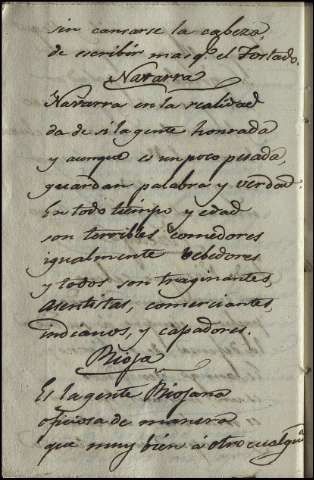 sin cansarse la cabeza,
de escribir mas q.e el Tostado.
Navarra
Navarra en la realidad
da de si la gente honrada
y aunque es un poco pesada,
guardan palabra y verdad.
En todo tiempo y edad
son terribles comedores
igualmente bebedores
y todos son traginantes,
asentistas, comerciantes,
indianos, y capadores.
Rioja
Es la gente Riojana
oficiosa de manera
que muy bien á otro cualqu.a